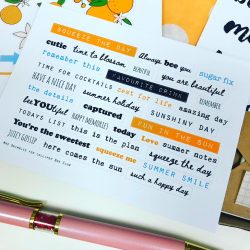 SQUEEZE THE DAY
cutie time to blossom Always bee you sugar fix
remember this BEAUTIFUL you are beautiful
TIME FOR COCKTAILS FAVOURITE DRINK REMEMBER
HAVE A NICE DAY zest for life amazing day
the details summer holiday SUNSHINY DAY
beYOUful captured HAPPY MEMORIES FUN IN THE SUN
TODAYS LIST this is the plan today Love summer notes
You're the sweetest squeeze me squeeze the day
JUICY GOSSIP here comes the sun SUMMER SMILE
such a happy day